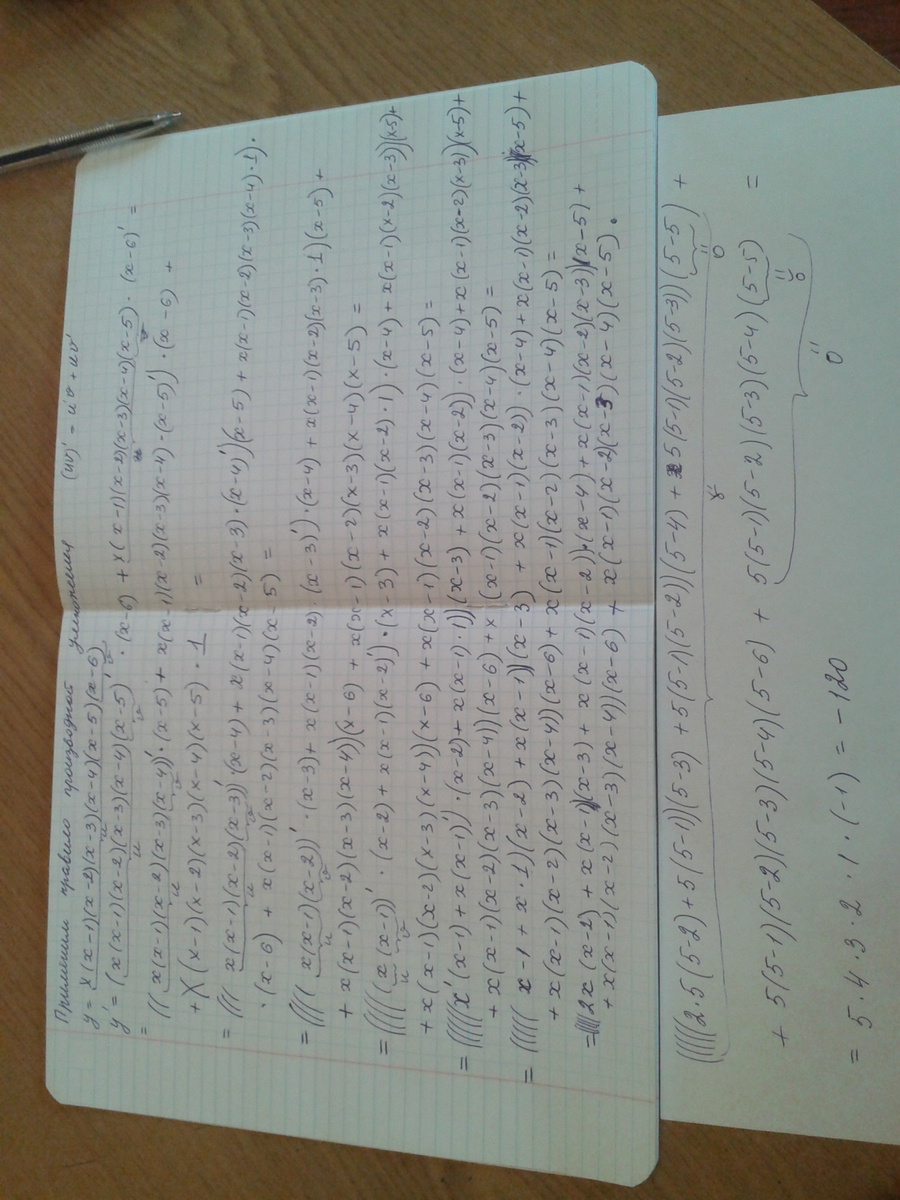 Применим правило производной умножения (uv)' = u'v + uv'
y = x(x-1)(x-2)(x-3)(x-4)(x-5)(x-6)
y' = (x(x-1)(x-2)(x-3)(x-4)(x-5))' · (x-6) + x(x-1)(x-2)(x-3)(x-4)(x-5) · (x-6)' =
= ((x(x-1)(x-2)(x-3)(x-4))' · (x-5) + x(x-1)(x-2)(x-3)(x-4) · (x-5)') · (x-6) +
+ x(x-1)(x-2)(x-3)(x-4)(x-5) · 1 =
= (((x(x-1)(x-2)(x-3))' · (x-4) + x(x-1)(x-2)(x-3) · (x-4)')(x-5) + x(x-1)(x-2)(x-3)(x-4) · 1) ·
· (x-6) + x(x-1)(x-2)(x-3)(x-4)(x-5) =
= ((((x(x-1)(x-2))' · (x-3) + x(x-1)(x-2) · (x-3)') · (x-4) + x(x-1)(x-2)(x-3) · 1)(x-5) +
+ x(x-1)(x-2)(x-3)(x-4))(x-6) + x(x-1)(x-2)(x-3)(x-4)(x-5) =
= (((((x(x-1))' · (x-2) + x(x-1)(x-2)') · (x-3) + x(x-1)(x-2) · 1) · (x-4) + x(x-1)(x-2)(x-3))(x-5) +
+ x(x-1)(x-2)(x-3)(x-4))(x-6) + x(x-1)(x-2)(x-3)(x-4)(x-5) =
= (((((x'(x-1) + x(x-1)') · (x-2) + x(x-1) · 1))(x-3) + x(x-1)(x-2)) · (x-4) + x(x-1)(x-2)(x-3))(x-5) +
+ x(x-1)(x-2)(x-3)(x-4))(x-6) + x(x-1)(x-2)(x-3)(x-4)(x-5) =
= (((((x-1 + x · 1)(x-2) + x(x-1))(x-3) + x(x-1)(x-2)) · (x-4) + x(x-1)(x-2)(x-3))(x-5) +
+ x(x-1)(x-2)(x-3)(x-4))(x-6) + x(x-1)(x-2)(x-3)(x-4)(x-5) =
= ((((2x(x-2) + x(x-1))(x-3) + x(x-1)(x-2)) · (x-4) + x(x-1)(x-2)(x-3))(x-5) +
+ x(x-1)(x-2)(x-3)(x-4))(x-6) + x(x-1)(x-2)(x-3)(x-4)(x-5).
(((((2·5(5-2) + 5(5-1))(5-3) + 5(5-1)(5-2))(5-4) + 5(5-1)(5-2)(5-3))(5-5) +
0
+ 5(5-1)(5-2)(5-3)(5-4)(5-6) + 5(5-1)(5-2)(5-3)(5-4)(5-5) =
0
0
= 5 · 4 · 3 · 2 · 1 · (-1) = -120